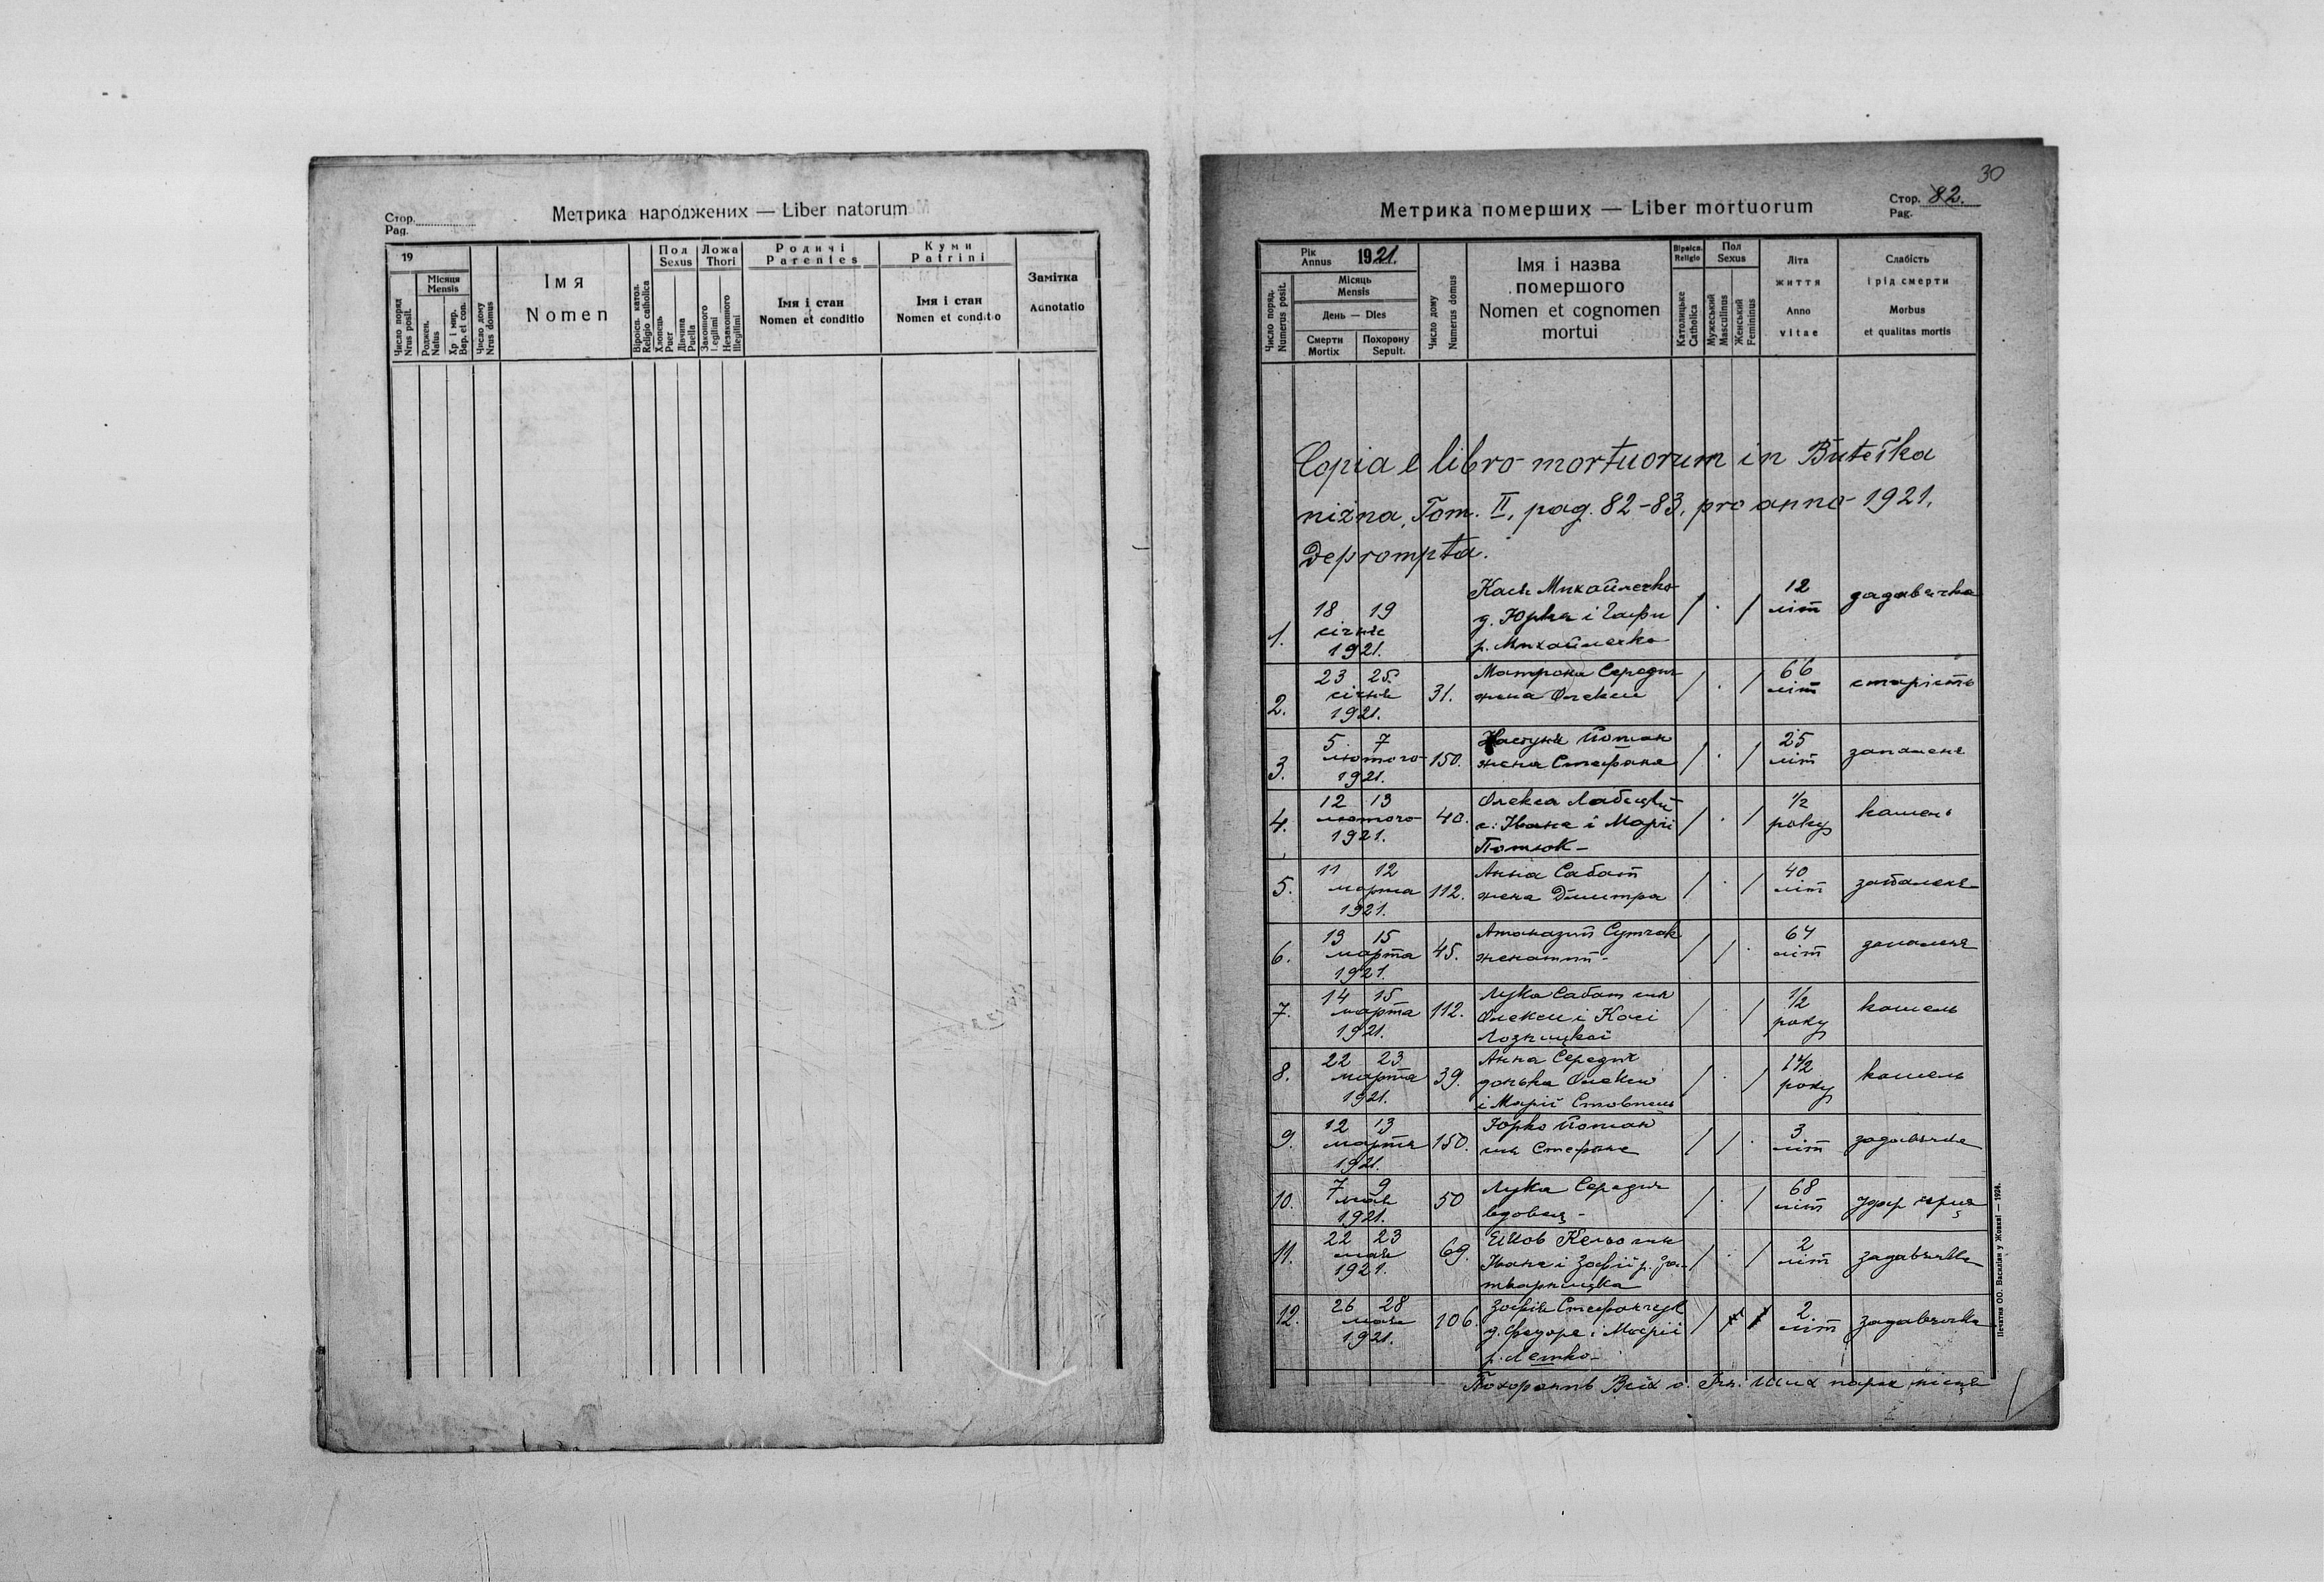 Стор.
Pag.
Метрика народжених — Liber natorum
19
Число поряд
Nrus posit.
Місяця
Mensis
Роджен.
Natus
Хр і мир.
Bap. et con.
Число дому
Nrus domus
Імя
Nomen
Віроісп. катол.
Religio catholica
Пол
Sexus
Хлопець
Puer
Дівчина
Puella
Ложа
Thori
Законного
Legitimi
Незаконного
Illegitimi
Родичі
Parentes
Імя і стан
Nomen et conditio
Куми
Patrini
Імя і стан
Nomen et conditio
Замітка
Adnotatio
30
Метрика померших — Liber mortuorum
Стор. 82.
Pag.
Число поряд.
Numerus posit.
Рік
Annus
1921.
Місяць
Mensis
День — Dies
Смерти
Mortix
Похорону
Sepult.
Число дому
Numerus domus
Імя і назва
помершого
Nomen et cognomen
mortui
Віроісп.
Religio
Католицьке
Catholica
Пол
Sexus
Мужеський
Masculinus
Женський
Femininus
Літа
життя
Anno
vitae
Слабість
і рід смерти
Morbus
et qualitas mortis
Copia e libro mortuorum in Buteľka
nižna, Tom. II, pag. 82-83, pro anno 1921.
Deprompta.
1. 18 19 січня 1921. / . / 12 літ задавачка
Кася Михайлечко
д. Юрка і Гафи
р. Михайлечко
2. 23 25. січня 1921. 31. / . / 66 літ старість
Матрона Середич
жена Олекси
3. 5. 7 лютого 1921. 150. / . / 25 літ запаленя
Настуня Йотман
жена Стефана
4. 12 13 лютого 1921. 40. / . / 1/2 року кашель
Олекса
с. Івана і Марії
Потюк -
5. 11 12 марта 1921. 112. / . / 40 літ запаленя
Анна Сабат
жена Дмитра
6. 13 15 марта 1921. 45. / / . 64 літ запаленя
Атаназий Сутчак
женатий -
7. 14 15 марта 1921. 112. / . / 1/2 року кашель
Лука Сабат син
Олекси і Касі
Лозинцкої
8. 22 23 марта 1921. 39. / . / 1 1/2 року кашель
Анна Середич
донька Олекси
і Марії Стовпець
9. 12 13 марта 1921. 150. / / . 3 літ задавачка
Юрко Йотман
син Стефана
10. 7 9 мая 1921. 50 / . / 68 літ удар серця
Лука Середич
вдовец -
11. 22 23 мая 1921. 69. / . / 2 літ задавачка
Івана і Зофії р. За-
тварницка
12. 26 28 мая 1921. 106. / 2 літ задавачка
Зофія Стефанчук
д. Федора і Марії
р. Летко -
Похоронив Всіх о. парох місця
Печатня ОО. Василіян у Жовкві — 1924.